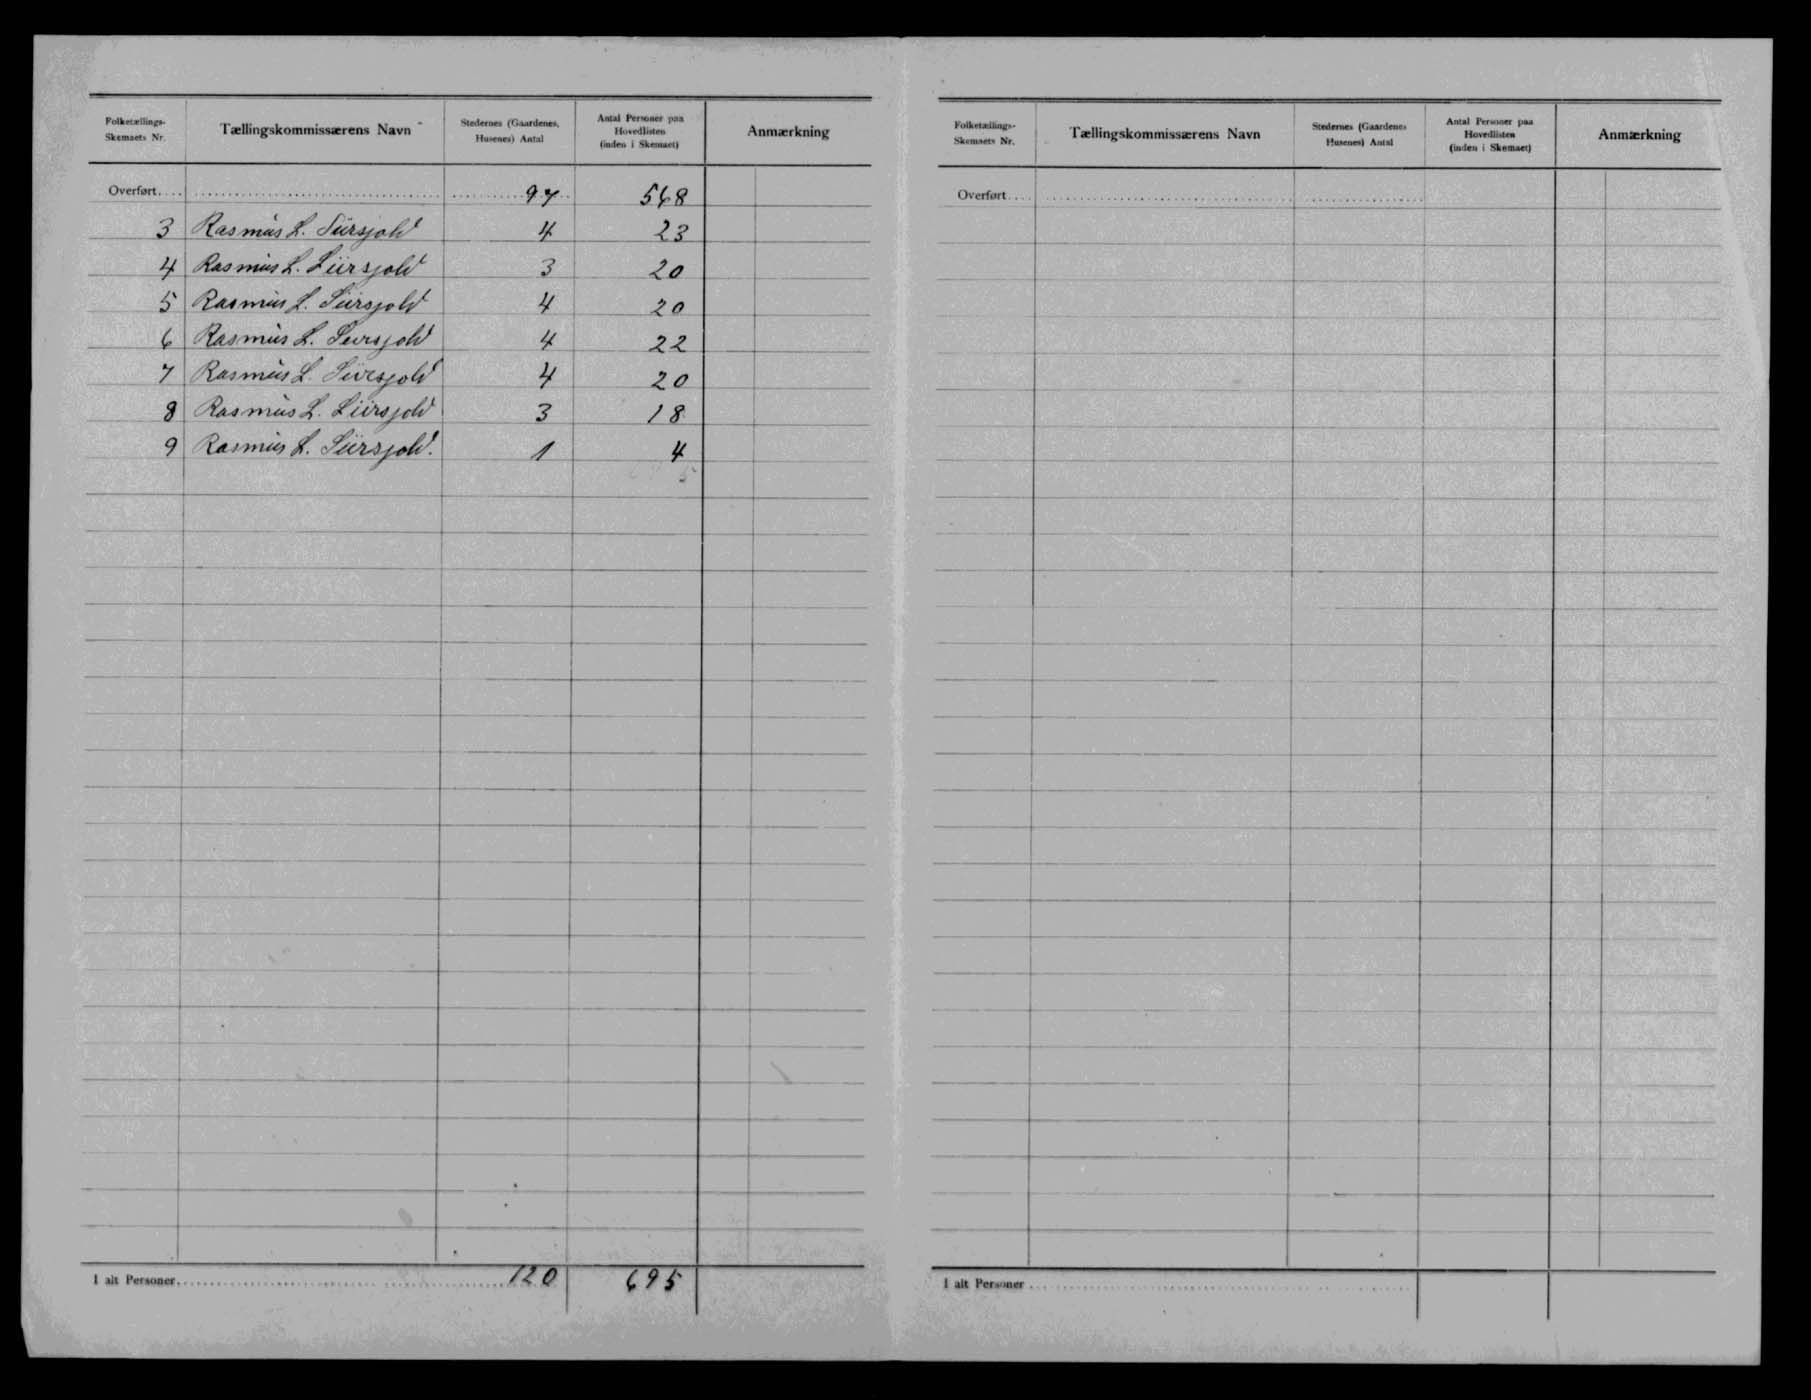 Folketællings-Skemaets Nr. Tællingskommissærens Navn Stedernes (Gaardenes, Husenes) Antal Antal Personer paa Hovedlisten (inden i Skemaet) Anmærkning
Overført.... 97 568
3 Rasmus L. 4 23
4 Rasmus L. 3 20
5 Rasmus L. 4 20
6 Rasmus L. 4 22
7 Rasmus L. 4 20
8 Rasmus L. 3 18
9 Rasmus L. 1 4
I alt Personer 120 695
Folketællings-Skemaets Nr. Tællingskommissærens Navn Stedernes (Gaardenes Husenes) Antal Antal Personer paa Hovedlisten (inden i Skemaet) Anmærkning
Overført....
I alt Personer